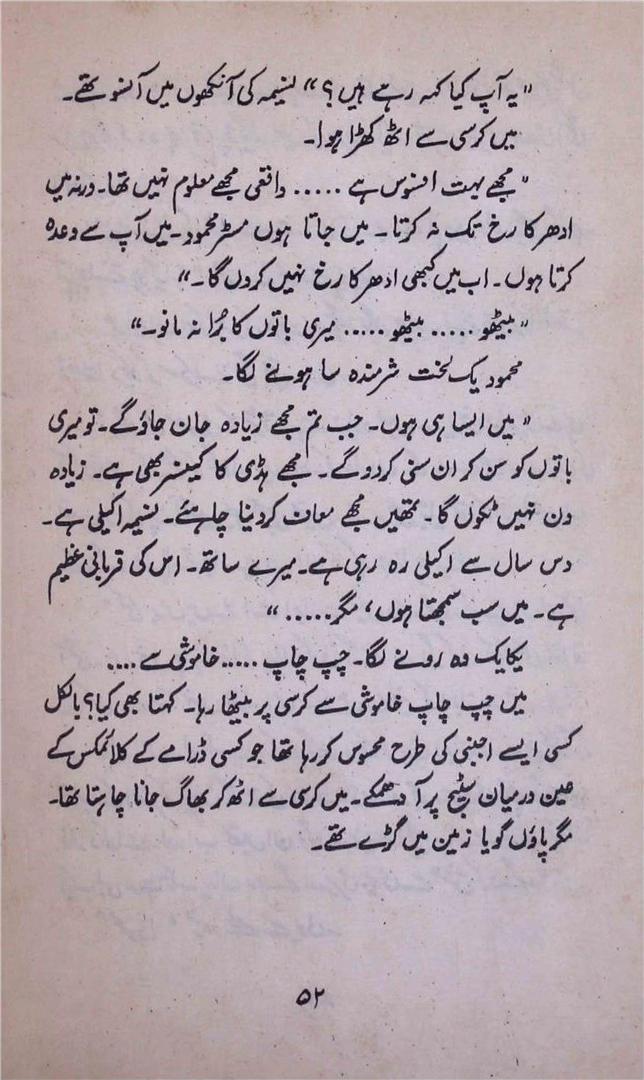 "یہ آپ کیا کہہ رہے ہیں؟" نسیمہ کی آنکھوں میں آنسو تھے۔
میں کرسی سے اٹھ کھڑا ہوا۔
"مجھے بہت افسوس ہے ..... واقعی مجھے معلوم نہیں تھا۔ ورنہ میں
ادھر کا رخ تک نہ کرتا۔ میں جاتا ہوں مسٹر محمود۔ میں آپ سے وعدہ
کرتا ہوں۔ اب میں کبھی ادھر کا رخ نہیں کروں گا۔"
"بیٹھو ..... بیٹھو ..... میری باتوں کا بُرا نہ مانو۔"
محمود یک لخت شرمندہ سا ہونے لگا۔
"میں ایسا ہی ہوں۔ جب تم مجھے زیادہ جان جاؤ گے۔ تو میری
باتوں کو سن کر ان سنی کر دو گے۔ مجھے ہڈی کا کینسر بھی ہے۔ زیادہ
دن نہیں ٹکوں گا۔ تمھیں مجھے معاف کر دینا چاہئے۔ نسیمہ اکیلی ہے۔
دس سال سے اکیلی رہ رہی ہے۔ میرے ساتھ۔ اس کی قربانی عظیم
ہے۔ میں سب سمجھتا ہوں، مگر ....."
یکایک وہ رونے لگا۔ چپ چاپ ..... خاموشی سے ....
میں چپ چاپ خاموشی سے کرسی پر بیٹھا رہا۔ کہتا بھی کیا؟ بالکل
کسی ایسے اجنبی کی طرح محسوس کر رہا تھا جو کسی ڈرامے کے کلائمکس کے
عین درمیان سٹیج پر آ دھمکے۔ میں کرسی سے اٹھ کر بھاگ جانا چاہتا تھا۔
مگر پاؤں گویا زمین میں گڑے تھے۔
۵۲